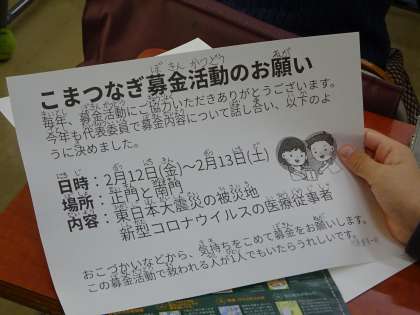 こまつなぎ募金活動のお願い
毎年、募金活動にご協力いただきありがとうございます。
今年も代表委員で募金内容について話し合い、以下のよ
うに決めました。
日時：2月12日(金)～2月13日(土)
場所：正門と南門
内容：東日本大震災の被災地
新型コロナウイルスの医療従事者
おこづかいなどから、気持ちをこめて募金をお願いします。
この募金活動で救われる人が1人でもいたらうれしいです。